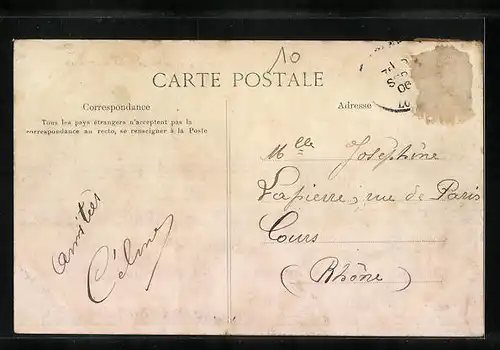 10
CARTE POSTALE
Correspondance
Tous les pays étrangers n'acceptent pas la
correspondance au recto, se renseigner à la Poste
Adresse
SEP
06
Mlle Joséphine
Lapierre, rue de Paris
Cours
(Rhône)
Amitiés
Céline